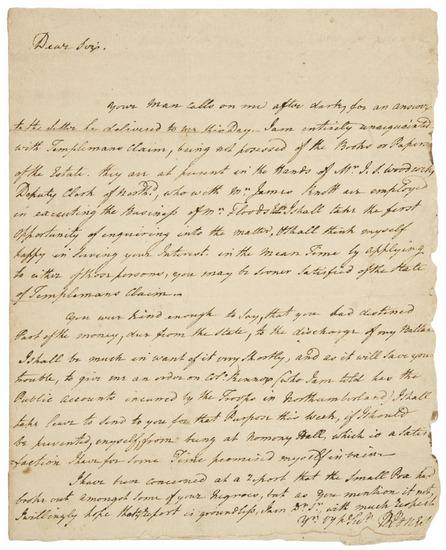 Dear Sir.
Your Man calls on me after dark, for an answer
to the Letter he delivered to me this Day. I am entirely unacquainted
with Templemans Claim, being not possessed of the Books or Papers
of the Estate. they are at present in the Hands of Mr.
Deputy Clerk of who with Mr. James Knott are employed
in executing the Business of Mr. I shall take the first
Opportunity of enquiring into the matter, & shall think myself
happy in serving your Interest. in the mean Time by applying
to either of those persons, you may be sooner Satisfied of the State
of Templemans Claim.
You were kind enough to say, that you had destined
Part of the money, due from the State, to the discharge of my
I shall be much in want of it very shortly, and as it will save you
trouble, to give me an order on Col. (who I am told has the
Public Accounts incurred by the Troops in Northumberland) I shall
take leave to send to you for that Purpose this Week, if I should
be prevented, myself, from being at Nomony Hall, which is a satis-
faction I have for some Time promised myself in vain.
I have been concerned at a report that the Small Pox had
broke out amongst some of your Negroes, but as you mention it not,
I willingly hope that report is groundless, I am Dr. Sir, with much respect